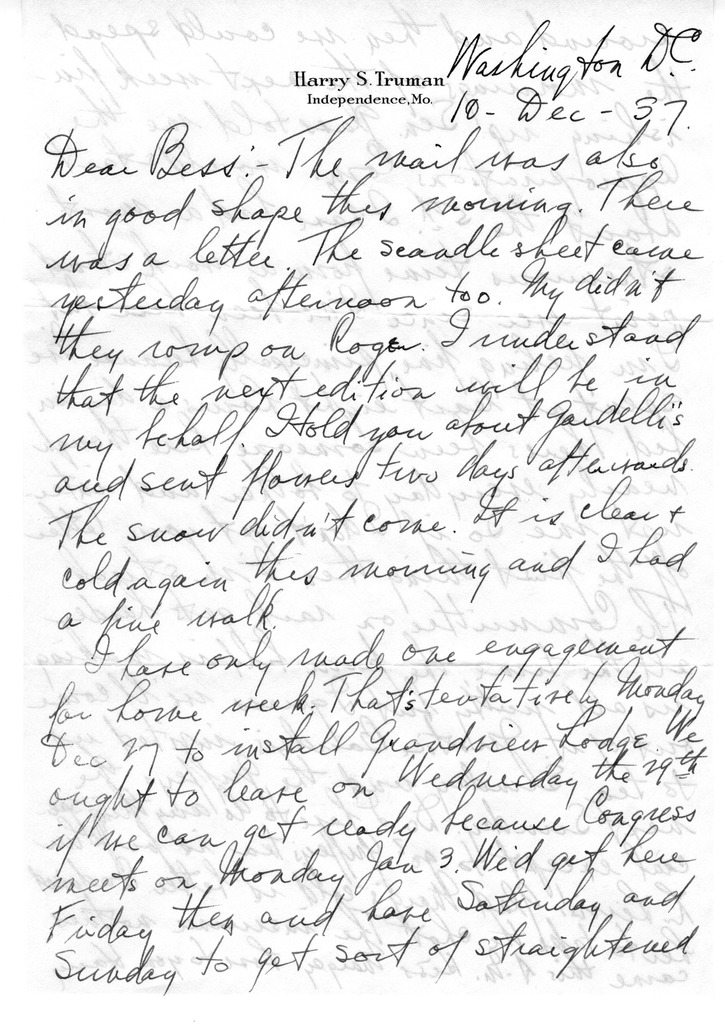 Harry S. Truman
Independence, Mo.
Washington D.C.
10 - Dec - 37.
Dear Bess:- The mail was also
in good shape this morning. There
was a letter. The scandle sheet came
yesterday afternoon too. My didn't
they romp on Roger. I understand
that the next edition will be in
my behalf. I told you about Gardelli's
and sent flowers two days afterwards.
The snow didn't come. It is clear +
cold again this morning and I had
a fine walk.
I have only made one engagement
for home week. That's tentatively Monday
Dec 27 to install Grandview Lodge. We
ought to leave on Wednesday the 29th
if we can get ready because Congress
meets on Monday Jan 3. We'd get here
Friday then and have Saturday and
Sunday to get sort of straightened